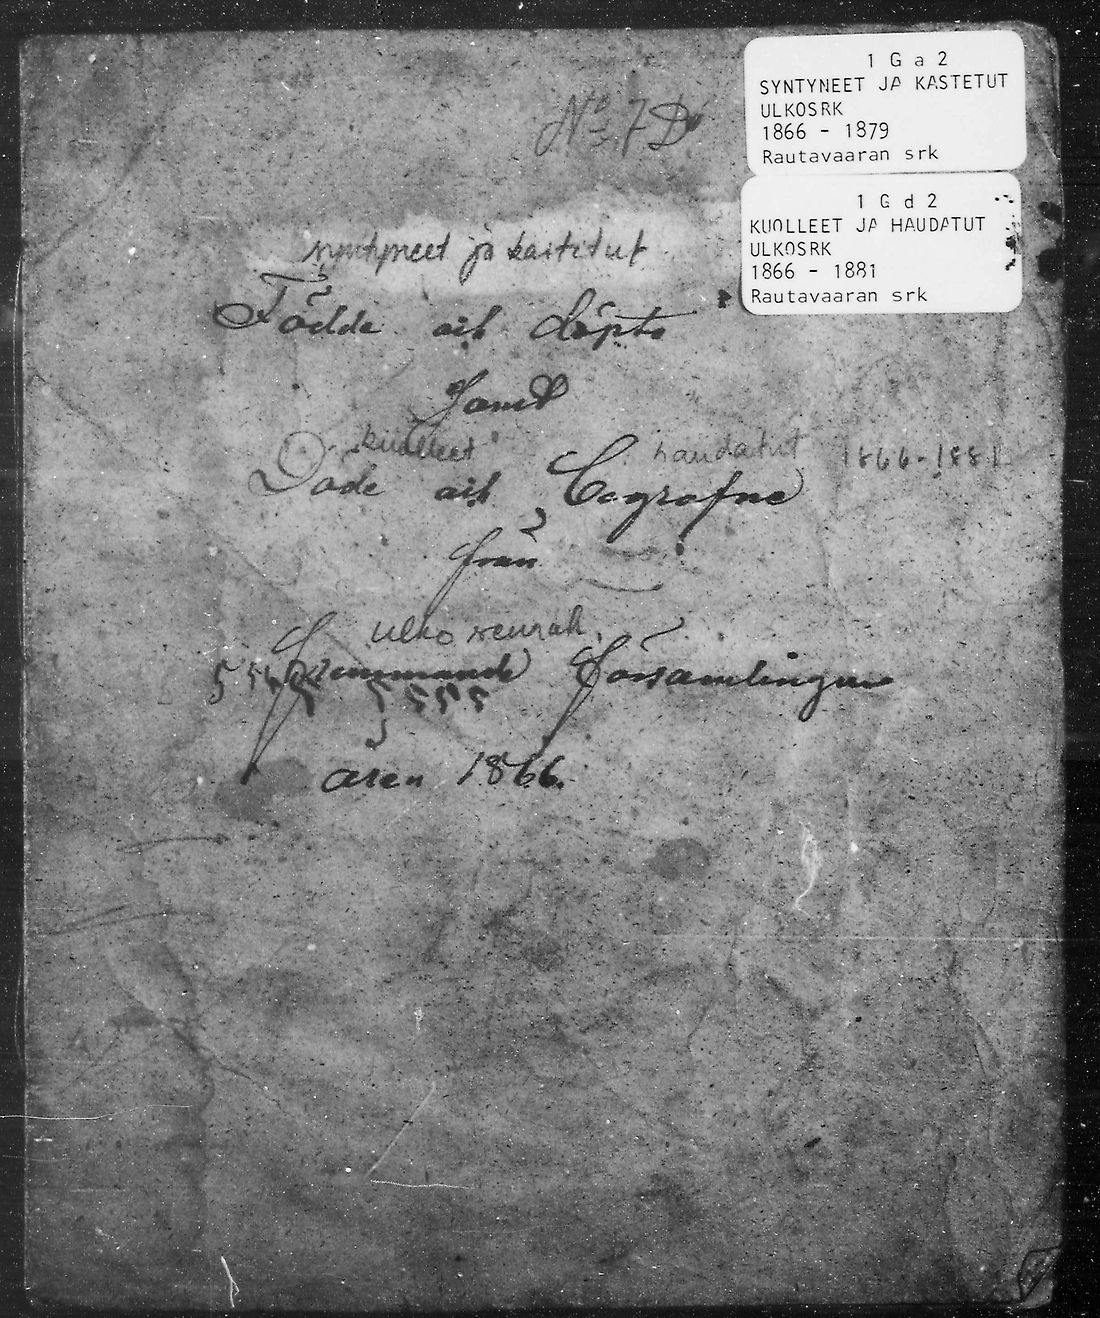 1 G a 2
SYNTYNEET JA KASTETUT
ULKOSRK
1866 - 1879
Rautavaaran srk
1 G d 2
KUOLLEET JA HAUDATUT
ULKOSRK
1866 - 1881
Rautavaaran srk
No 7
syntyneet ja kastetut
Födde och döpte
Samt
kuolleet haudatut 1866-1881
Döde och Begrafne
från
ulko seurak.
främmande församlingar
åren 1866.